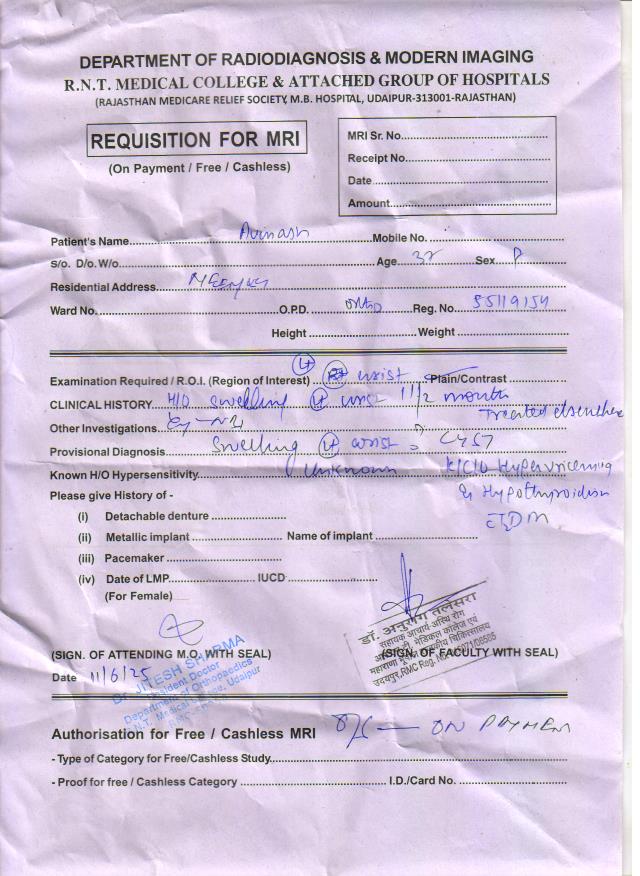 DEPARTMENT OF RADIODIAGNOSIS & MODERN IMAGING
R.N.T. MEDICAL COLLEGE & ATTACHED GROUP OF HOSPITALS
(RAJASTHAN MEDICARE RELIEF SOCIETY, M.B. HOSPITAL, UDAIPUR-313001-RAJASTHAN)
REQUISITION FOR MRI
(On Payment / Free / Cashless)
MRI Sr. No.
Receipt No.
Date
Amount
Patient's Name Avinash Mobile No.
S/o. D/o. W/o Age 32 Sex
Residential Address
Ward No. O.P.D. Ortho Reg. No. 5519154
Height Weight
Examination Required / R.O.I. (Region of Interest) Lt wrist Plain/Contrast
CLINICAL HISTORY H/O swelling Lt wrist 1 1/2 month
Treated elsewhere
Other Investigations
Provisional Diagnosis Swelling Lt wrist ? CYST
Known H/O Hypersensitivity Unknown K/C/O Hyperuricemia
& Hypothyroidism
Please give History of -
(i) Detachable denture
(ii) Metallic implant Name of implant
(iii) Pacemaker
(iv) Date of LMP IUCD
(For Female)
डॉ. अनुराग तलेसरा
सहायक आचार्य-अस्थि रोग
(SIGN. OF ATTENDING M.O. WITH SEAL) (SIGN. OF FACULTY WITH SEAL)
Date 11/6/25
Dr. JITESH SHARMA
Resident Doctor
Department of Orthopaedics
R.N.T. Medical College, Udaipur
Authorisation for Free / Cashless MRI ON PAYMENT
- Type of Category for Free/Cashless Study
- Proof for free / Cashless Category I.D./Card No.